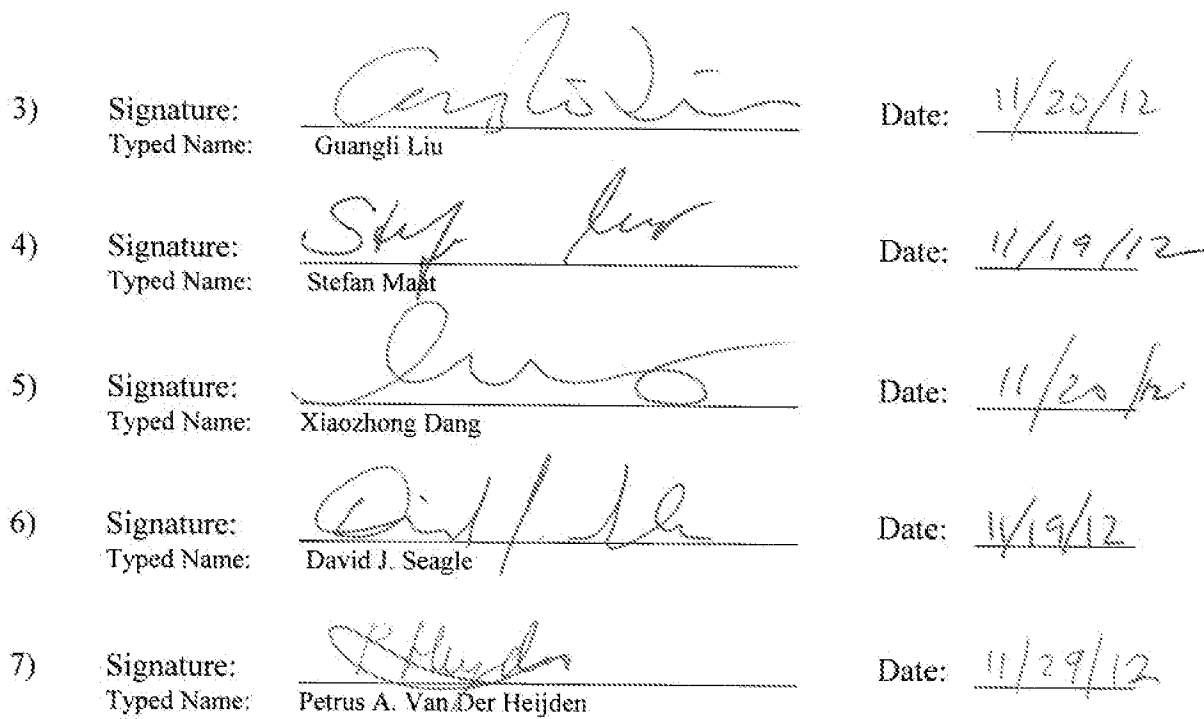 3) Signature: Date: 11/20/12
Typed Name: Guangli Liu
4) Signature: Date: 11/19/12
Typed Name: Stefan Maat
5) Signature: Date: 11/20/12
Typed Name: Xiaozhong Dang
6) Signature: Date: 11/19/12
Typed Name: David J. Seagle
7) Signature: Date: 11/29/12
Typed Name: Petrus A. Van Der Heijden